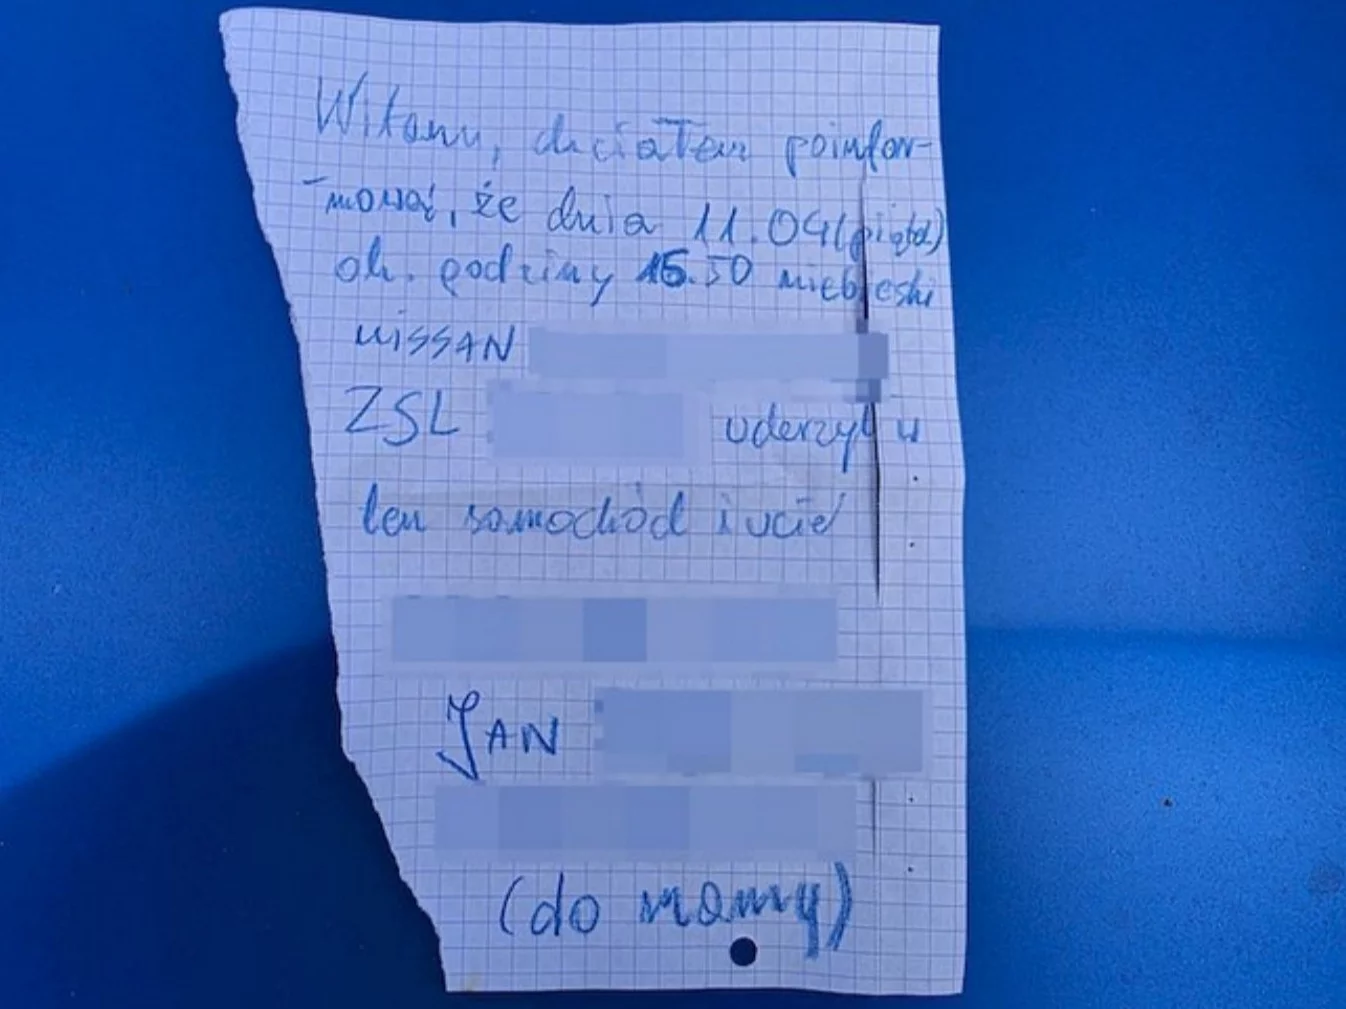 Witam, chciałem poinfor-
-mować, że dnia 11.04 (piątek)
ok. godziny 16.50 niebieski
nissan
ZSL uderzył w
ten samochód i uciekł
JAN
(do mamy)